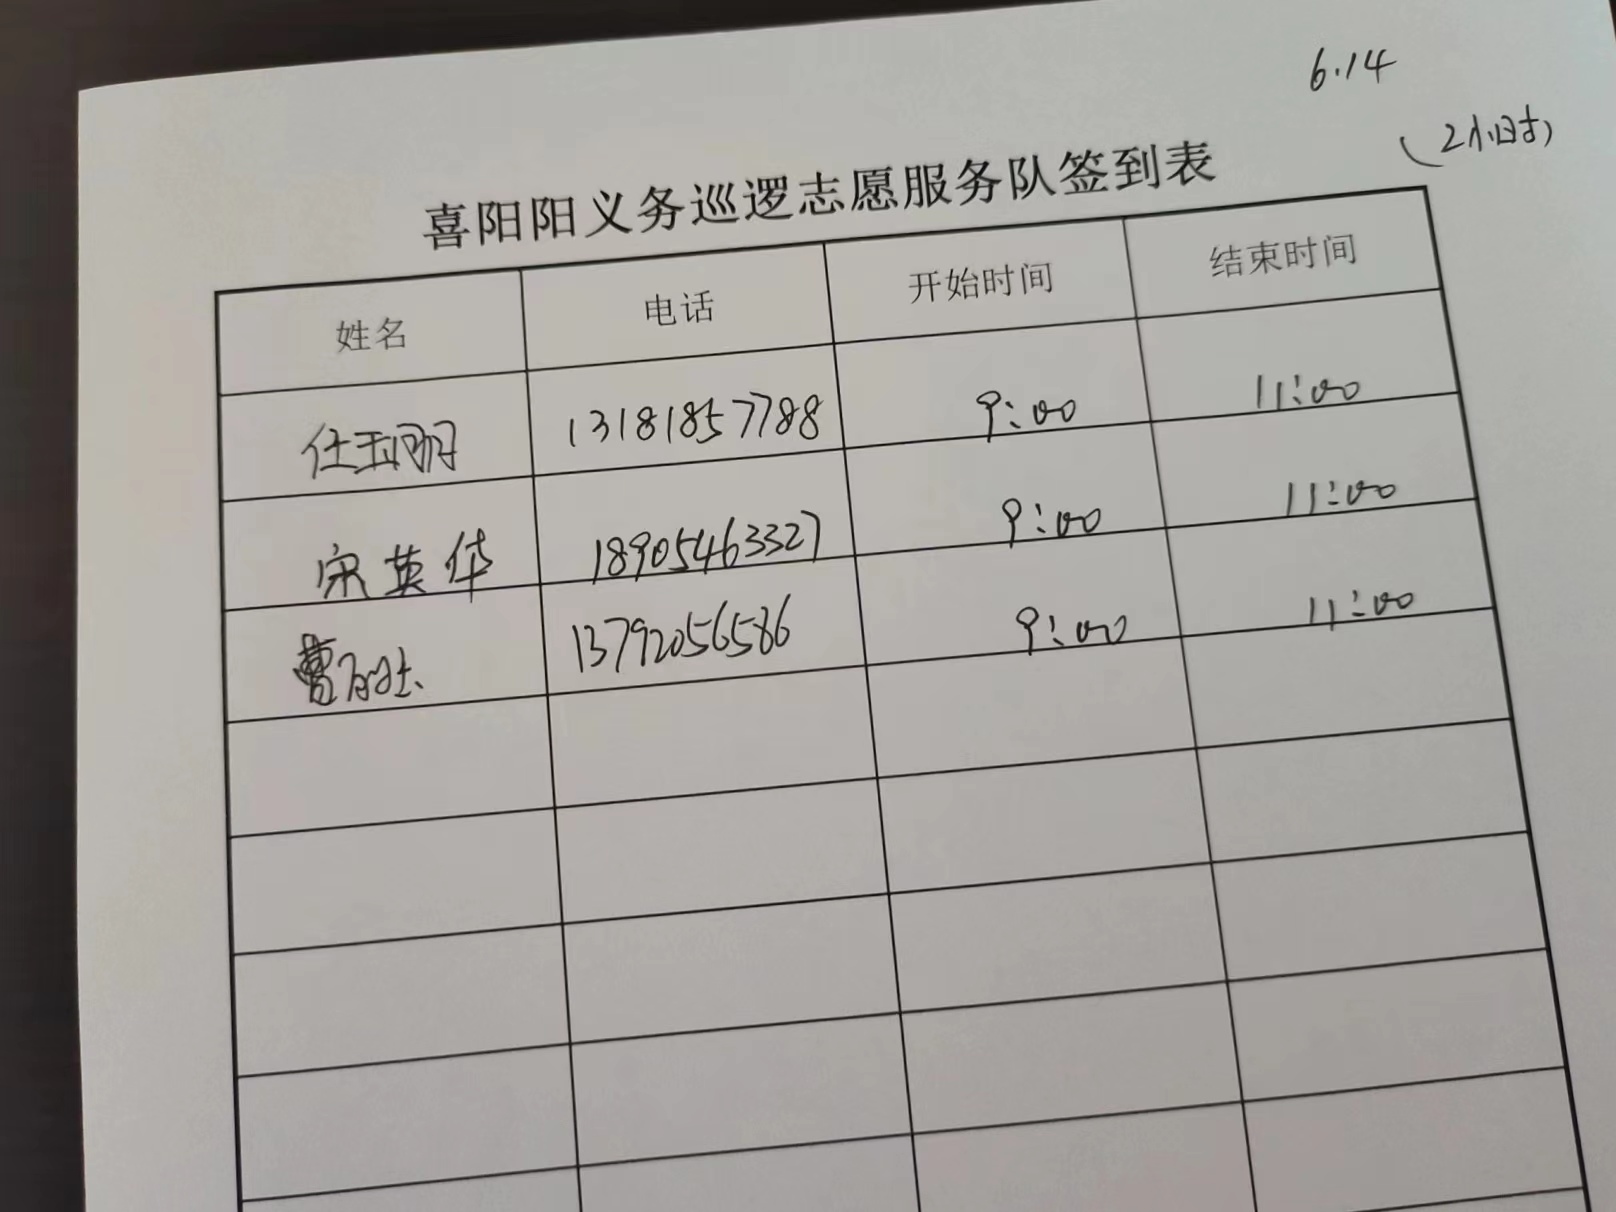 6.14
(2小时)
喜阳阳义务巡逻志愿服务队签到表
姓名 电话 开始时间 结束时间
任玉丽 13181857788 9:00 11:00
宋英华 18905463327 9:00 11:00
曹 13792056586 9:00 11:00